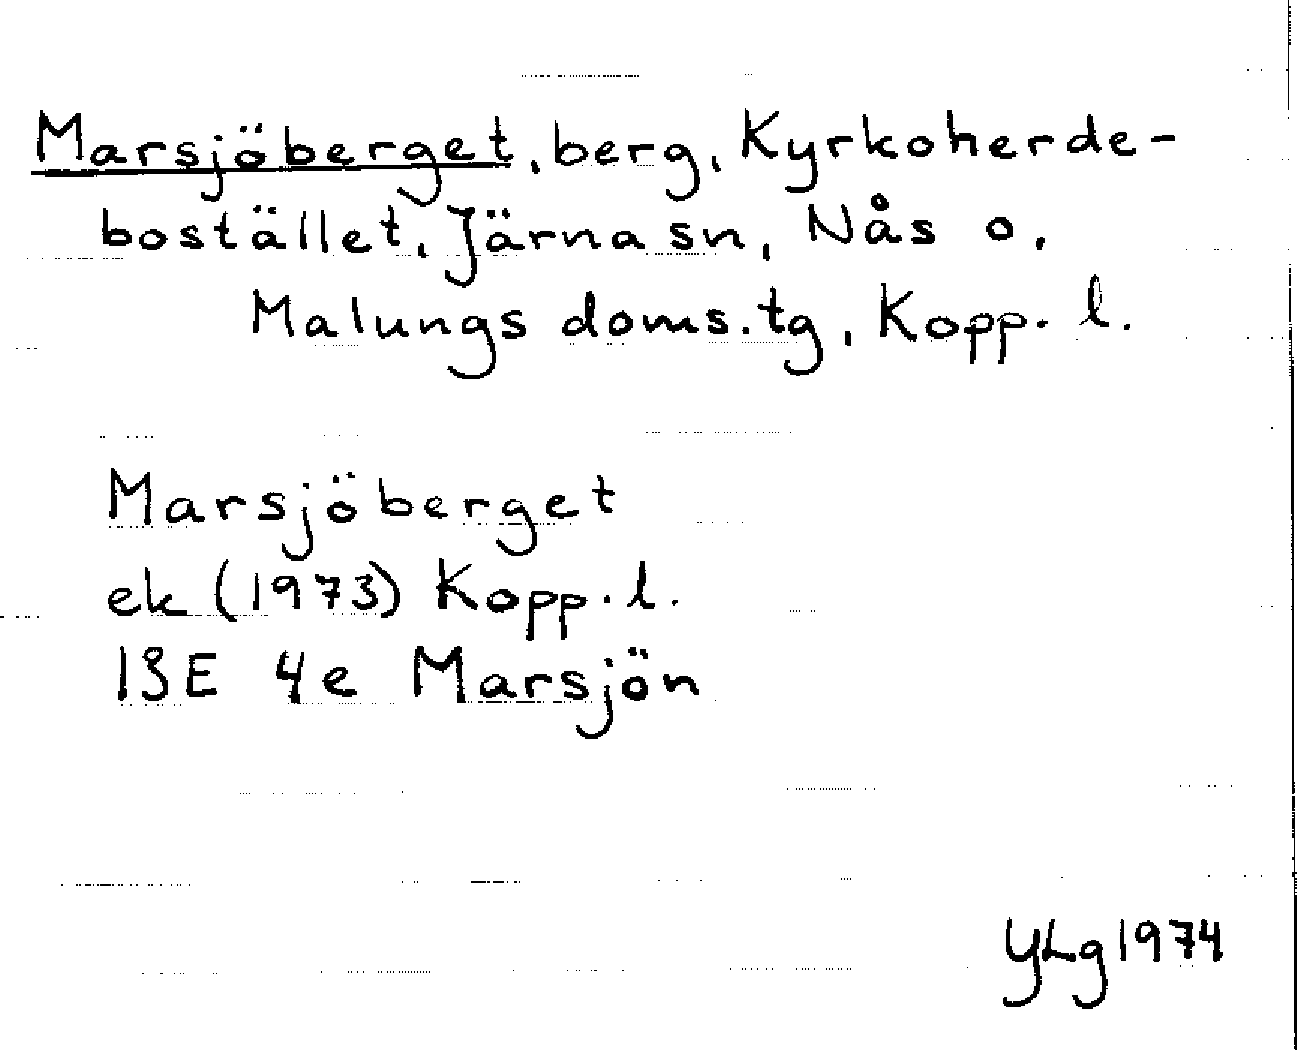 Marsjöberget, berg, Kyrkoherde-
bostället, Järna sn, Nås o,
Malungs doms.tg, Kopp. l.
Marsjöberget
ek (1973) Kopp.l.
13E 4e Marsjön
YLg 1974